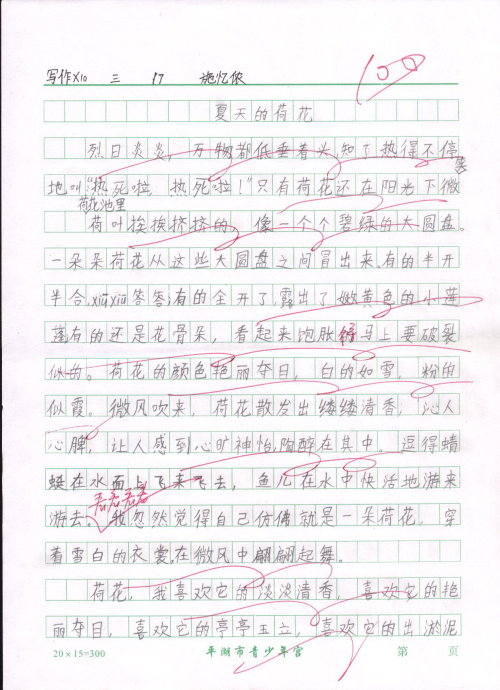 写作X10 三 17 施忆依
100
夏天的荷花
烈日炎炎，万物都低垂着头,知了热得不停
地叫:"热死啦，热死啦！"只有荷花还在阳光下微
笑
荷花池里
荷叶挨挨挤挤的，像一个个碧绿的大圆盘。
一朵朵荷花从这些大圆盘之间冒出来,有的半开
半合,xiūxiū答答;有的全开了,露出了嫩黄色的小莲
蓬有的还是花骨朵，看起来饱胀得马上要破裂
似的。荷花的颜色艳丽夺目，白的如雪，粉的
似霞。微风吹来，荷花散发出缕缕清香，沁人
心脾，让人感到心旷神怡,陶醉在其中。逗得蜻
蜓在水面上飞来飞去，鱼儿在水中快活地游来
游去。我忽然觉得自己仿佛就是一朵荷花，穿
看看看看
着雪白的衣裳,在微风中翩翩起舞。
荷花，我喜欢它的淡淡清香，喜欢它的艳
丽夺目，喜欢它的亭亭玉立，喜欢它的出淤泥
20×15=300 平湖市青少年宫 第 页